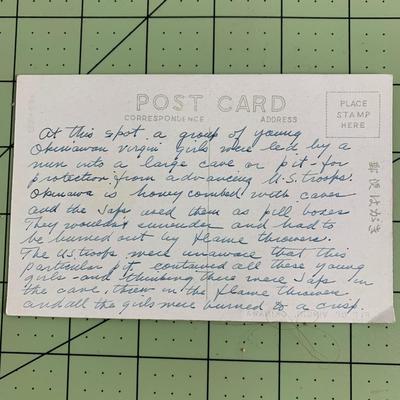 POST CARD
CORRESPONDENCE
ADDRESS
PLACE
STAMP
HERE
At this spot a group of young
Okinawan virgin girls were led by a
nun into a large cave or pit - for
protection from advancing U.S. troops.
Okinawa is honeycombed with caves
and the Japs used them as pill boxes
They wouldn't surrender and had to
be burned out by flame throwers.
The U.S. troops were unaware that this
particular pit contained all these young
girls and thinking there were Japs in
the cave, threw in the flame thrower
and all the girls were burned to a crisp.